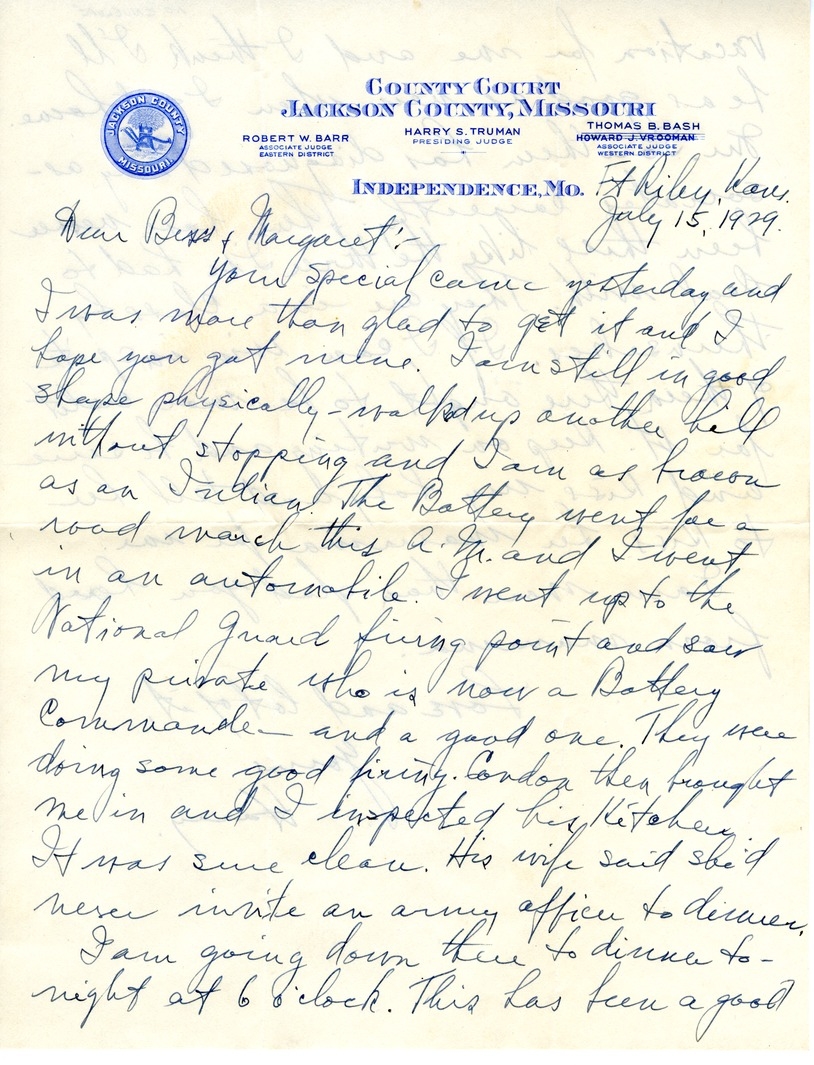 COUNTY COURT
JACKSON COUNTY, MISSOURI
JACKSON COUNTY
MISSOURI
ROBERT W. BARR
ASSOCIATE JUDGE
EASTERN DISTRICT
HARRY S. TRUMAN
PRESIDING JUDGE
THOMAS B. BASH
HOWARD J. VROOMAN
ASSOCIATE JUDGE
WESTERN DISTRICT
INDEPENDENCE, MO. Ft Riley, Kans.
July 15, 1929.
Dear Bess & Margaret:-
Your special came yesterday and
I was more than glad to get it and I
hope you got mine. I am still in good
shape physically - walked up another hill
without stopping and I am as brown
as an Indian. The Battery went for a
road march this A.M. and I went
in an automobile. I went up to the
National Guard firing point and saw
my private who is now a Battery
Commander and a good one. They were
doing some good firing. Condon then brought
me in and I inspected his kitchen.
It was sure clean. His wife said she'd
never invite an army officer to dinner.
I am going down there to dinner to-
night at 6 o'clock. This has been a good